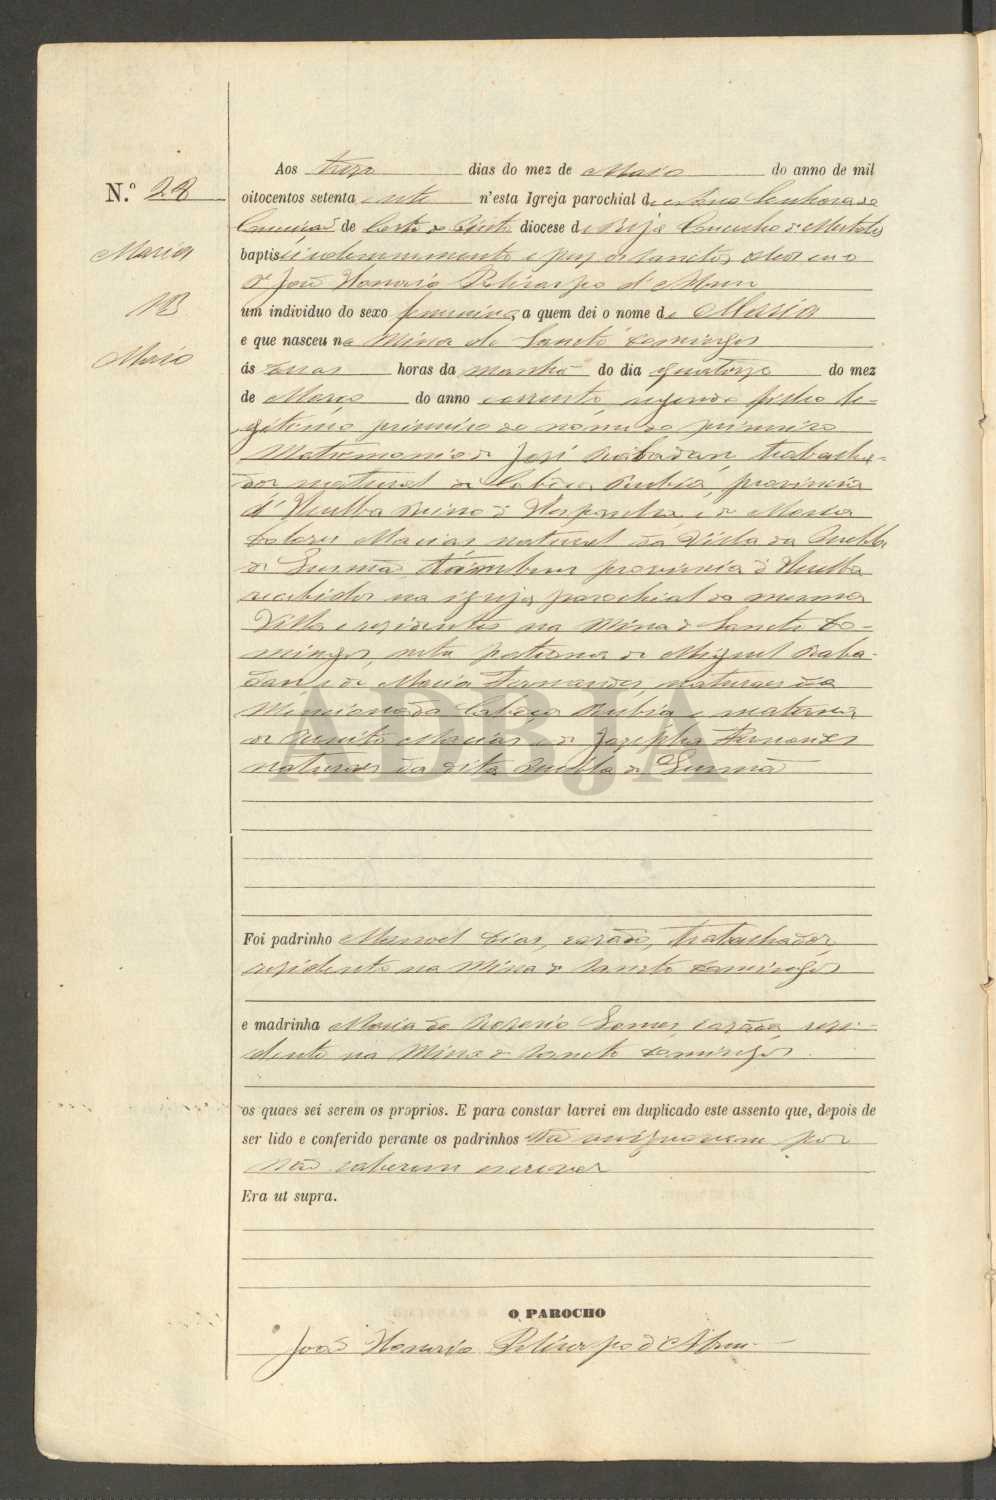 N.º 28
Maria
Maio
Aos treze dias do mez de Maio do anno de mil
oitocentos setenta e sete n'esta Igreja parochial de Nossa Senhora da
Conceição de Corte do Pinto diocese de Beja Concelho de Mertola
baptisei solemnemente e puz os Sanctos Oleos eu o
P.e João Honorio Policarpo d'Abreu
um individuo do sexo feminino, a quem dei o nome de Maria
e que nasceu na Mina de Sancto Domingos
ás duas horas da manhã do dia quatorze do mez
de Março do anno corrente, segunda filha le-
gitima primeira do nome do primeiro
Matrimonio de José Rabadan, trabalha-
dor natural de Cabeça Rubia, provincia
d'Huelba Reino d'Hespanha, e de Maria
Dolores Macias natural da Villa da Puebla
de Gusmã, também provincia d'Huelba
recebidos na igreja parochial da mesma
Villa e residentes na Mina de Sancto Do-
mingos, neta paterna de Miguel Raba-
dan e de Maria Fernandes, naturaes da
Mencionada Cabeça Rubia e materna
de Benito Macias e de Josepha Fernandes
naturaes da dita Puebla de Gusmã
ADBJA
Foi padrinho Manoel Dias, casado, trabalhador,
residente na Mina de Sancto Domingos
e madrinha Maria do Rosario Gomes, casada, resi-
dente na Mina de Sancto Domingos
os quaes sei serem os proprios. E para constar lavrei em duplicado este assento que, depois de
ser lido e conferido perante os padrinhos não assignaram por
não saberem escrever
Era ut supra.
O PAROCHO
João Honorio Policarpo d'Abreu